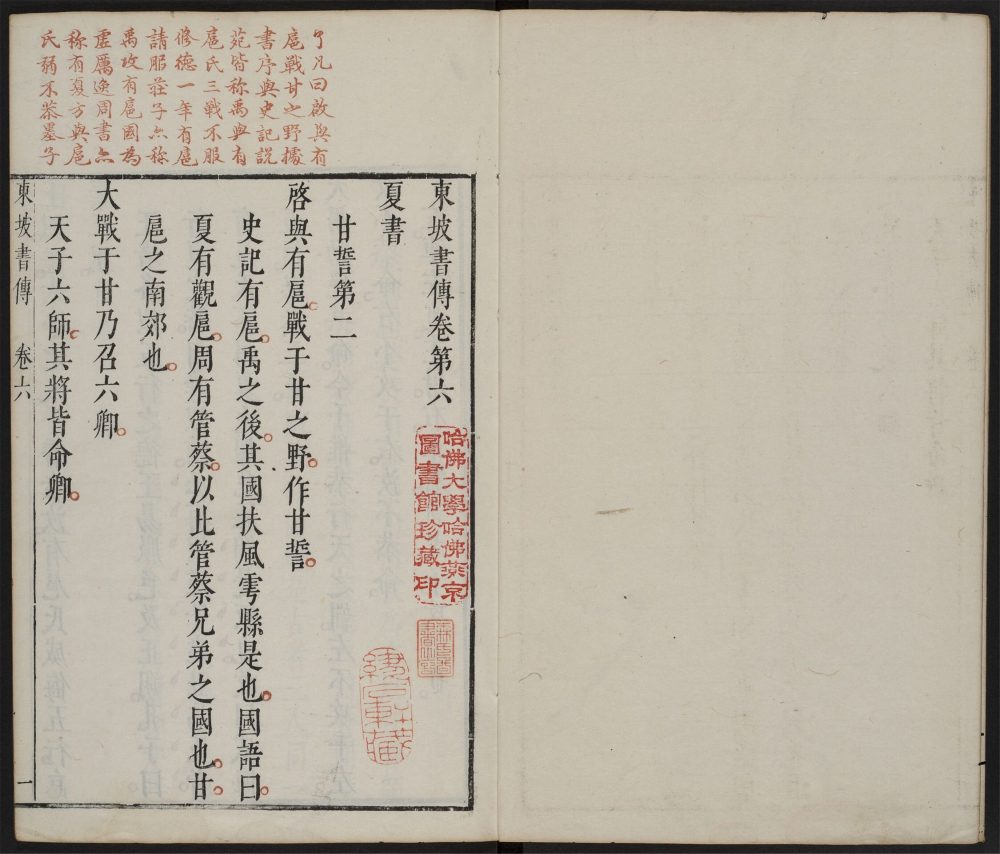 了凡曰啟與有
扈戰甘之野據
書序與史記説
苑皆称禹與有
扈氏三戰不服
修德一年有扈
請服莊子亦称
禹攻有扈國為
虚厲逸周書亦
称有夏方興扈
氏弱不恭墨子
東坡書傳卷第六
夏書
甘誓第二
啓與有扈戰于甘之野。作甘誓。
史記有扈。禹之後。其國扶風雩縣是也。國語曰
夏有觀扈。周有管蔡。以比管蔡兄弟之國也。甘。
扈之南郊也。
大戰于甘乃召六卿。
天子六師。其將皆命卿。
東坡書傳 卷六 一
哈佛大學哈佛燕京
圖書館珍藏印